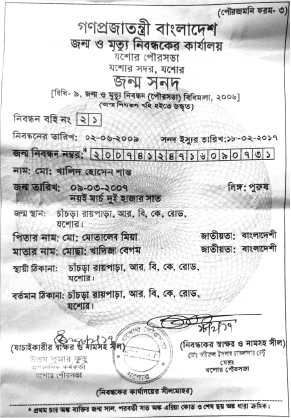 [পৌরজমনি ফরম- ৩)
গণপ্রজাতন্ত্রী বাংলাদেশ
জন্ম ও মৃত্যু নিবন্ধকের কার্যালয়
যশোর পৌরসভা
যশোর সদর, যশোর
জন্ম সনদ
[বিধি - ৯, জন্ম ও মৃত্যু নিবন্ধন (পৌরসভা) বিধিমালা, ২০০৬]
(জন্ম নিবন্ধন বহি হইতে উদ্ধৃত)
নিবন্ধন বহি নং ২১
নিবন্ধনের তারিখ: ০২-০৬-২০০৯ সনদ ইস্যুর তারিখ:১৮-০২-২০১৭
জন্ম নিবন্ধন নম্বর:* ২০০৭৪১২৪৭১৬০৯০৭৩১
নাম: মো: খালিদ হোসেন শান্ত
জন্ম তারিখ: ০৯-০৩-২০০৭ লিঙ্গ: পুরুষ
নয়ই মার্চ দুই হাজার সাত
জন্ম স্থান: চাঁচড়া রায়পাড়া, আর, বি, কে, রোড,
যশোর।
পিতার নাম: মো: মোতালেব মিয়া জাতীয়তা: বাংলাদেশী
মাতার নাম: মোছা: খালিজা বেগম জাতীয়তা: বাংলাদেশী
স্থায়ী ঠিকানা: চাঁচড়া রায়পাড়া, আর, বি, কে, রোড,
যশোর।
বর্তমান ঠিকানা: চাঁচড়া রায়পাড়া, আর, বি, কে, রোড,
যশোর।
(যাচাইকারীর স্বাক্ষর ও নামসহ সীল) (নিবন্ধকের স্বাক্ষর ও নামসহ সীল)
যশোর পৌরসভা মেয়র
যশোর পৌরসভা
(নিবন্ধকের কার্যালয়ের সীলমোহর)
* প্রথম চার অঙ্ক ব্যক্তির জন্ম সাল, পরবর্তী সাত অঙ্ক এরিয়া কোড ও শেষ ছয় অঙ্ক ধারা ক্রমিক।